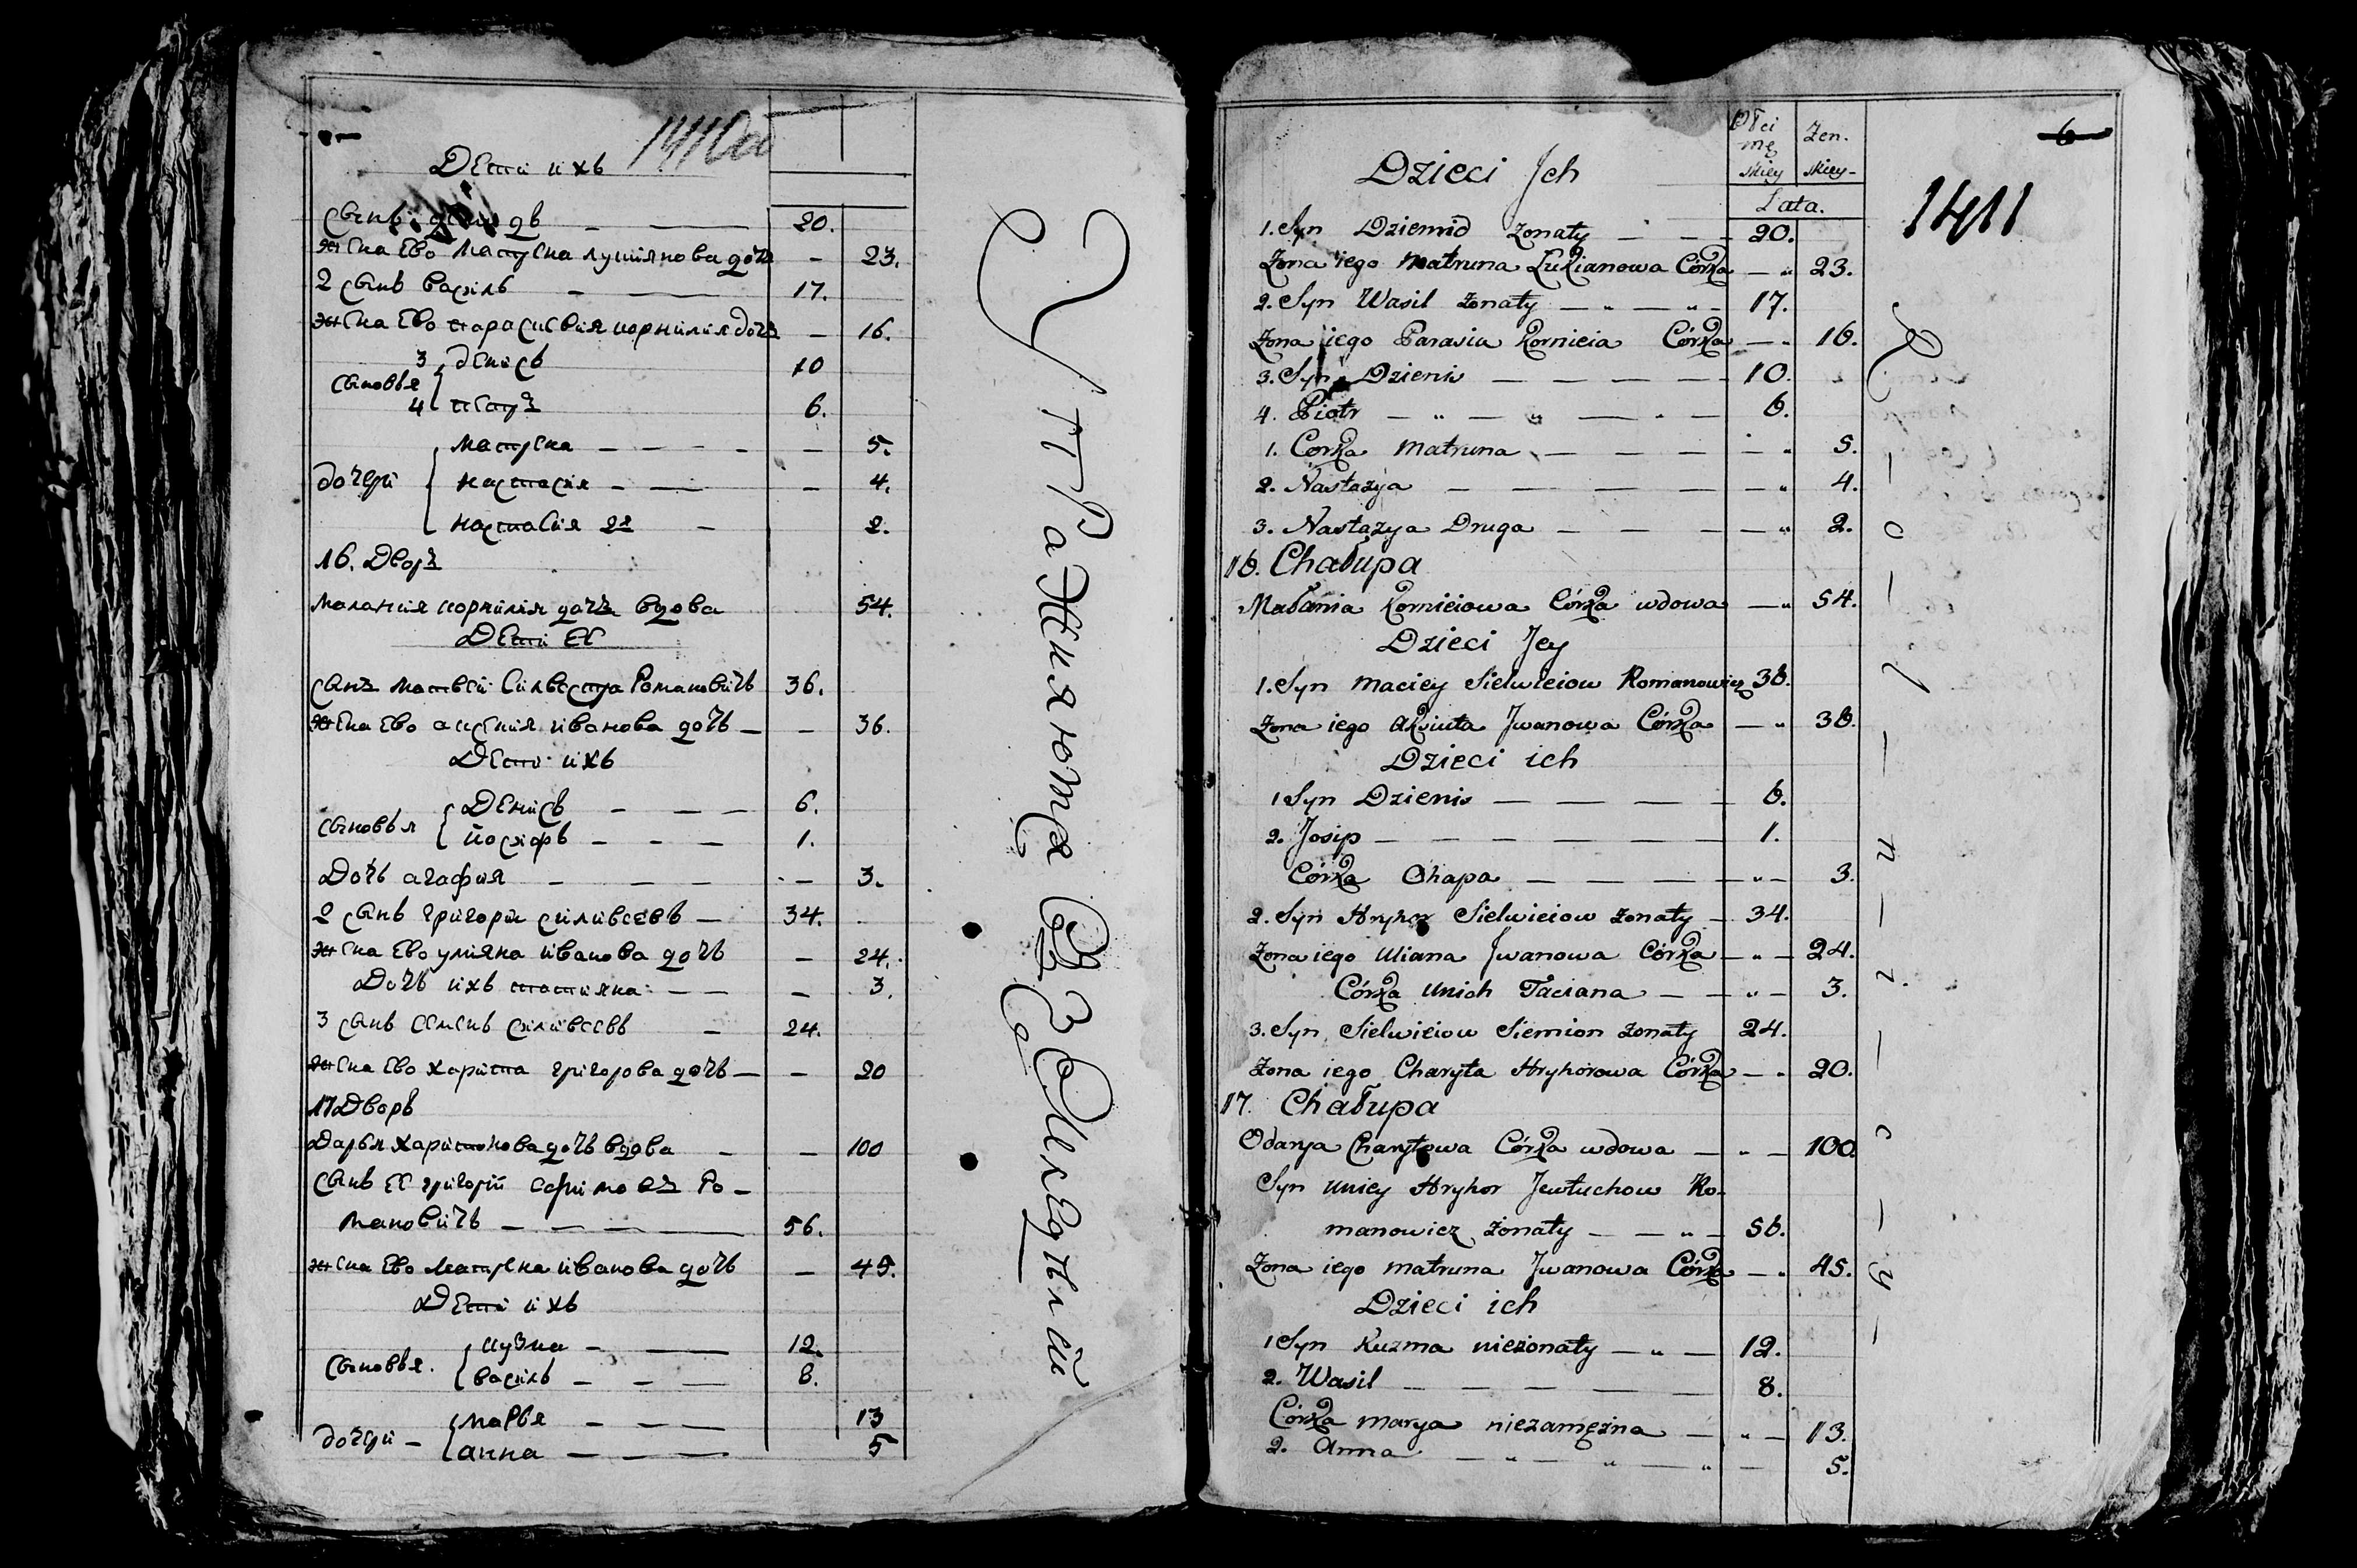 1411об
Дети ихъ
Сынъ демидъ — — 20.
жена Ево Матрена лукиянова дочь — 23.
2 сынъ василь — — 17.
жена Ево парасковия корнилия дочь — 16.
Сыновья
3 денисъ 10
4 петръ 6.
дочери
матрена — — — — — 5.
настасия — — — 4.
настасия 2я — 2.
16. Дворъ
малания корнилия дочь вдова 54.
Дети ЕЕ
сынъ матвей Силвестра Романовичь 36.
жена Ево аксения иванова дочь — — 36.
Дети ихъ
сыновья
Денисъ — — — 6.
иосифъ — — — 1.
Дочь агафия — — — — 3.
2 сынъ григори силивеевъ — 34.
жена Ево улияна иванова дочь — 24.
Дочь ихъ татияна — — — 3.
3 сынъ семенъ силивеевъ — 24.
жена Ево харитта григорова дочь — — 20
17 Дворъ
Дарья харитонова дочь вдова — — 100
сынъ ЕЕ григорий Ро-
мановичь — — — 56.
жена Ево матрена иванова дочь — 45.
Дети ихъ
Сыновья.
кузма — — 12.
василь — — — 8.
дочери —
марья — — — 13
анна — — — 5
Упражняютца в Земледелии
Płci mę skiey Żen. skiey-
6
Dzieci Jch
Lata.
1411
1. Syn Dziemid żonaty — — — 20.
Żona iego Matruna Łukianowa Córka — „ 23.
2. Syn Wasil żonaty — „ — „ — 17.
Żona iego Parasia Kornieia Córka — „ 16.
3. Syn Dzienis — — — — — 10.
4. Piotr — „ — „ — — 6.
1. Corka Matruna — — — — — „ 5.
2. Nastazya — — — — — „ 4.
3. Nastazya Druga — — — — „ 2.
16. Chałupa
Małania Kornieiowa Córka wdowa — „ 54.
Dzieci Jey
1. Syn Maciey Sielwieiow Romanowicz 36.
Żona iego Aksiuta Jwanowa Córka — „ 36.
Dzieci ich
1 Syn Dzienis — — — — 6.
2. Josip — — — — — 1.
Córka Ohapa — — — — „ — 3.
2. Syn Hryhor Sielwieiow żonaty — 34.
Żona iego Uliana Jwanowa Córka — „ — 24.
Córka unich Taciana — — „ — 3.
3. Syn Sielwieiow Siemion żonaty 24.
Żona iego Charyta Hryhorowa Córka — „ 20.
17. Chałupa
Odarya Charytowa Córka wdowa — „ — 100
Syn uniey Hryhor Jewtuchow Ro-
manowicz żonaty — — „ — 56.
Żona iego Matruna Jwanowa Córka — „ 45.
Dzieci ich
1 Syn Kuzma nieżonaty — „ — 12.
2. Wasil — — — — — 8.
Córka Marya niezamężna — „ — 13.
2. Anna — „ — „ — „ — 5.
R — o — l — n — i — c — y —